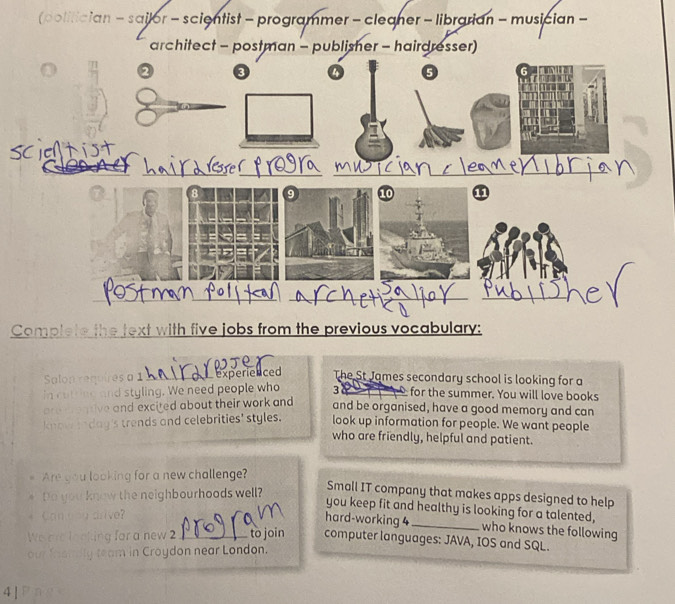 (politician – sailor – scientist – programmer – cleaner – librarian – musician –
architect – postman – publisher – hairdresser)
2 3 4 5 6
scientist
hairdresser progra musician cleaner librian
7 8 9 10 11
Postman politean archetic sailor Publisher
Complete the text with five jobs from the previous vocabulary:
Salon requires a 1 hairdresser experienced
in cutting and styling. We need people who
are creative and excited about their work and
know today's trends and celebrities' styles.
The St James secondary school is looking for a
3 for the summer. You will love books
and be organised, have a good memory and can
look up information for people. We want people
who are friendly, helpful and patient.
Are you looking for a new challenge?
Do you know the neighbourhoods well?
Can you drive?
We are looking for a new 2 program to join
our friendly team in Croydon near London.
Small IT company that makes apps designed to help
you keep fit and healthy is looking for a talented,
hard-working 4 ______ who knows the following
computer languages: JAVA, IOS and SQL.
4 | P